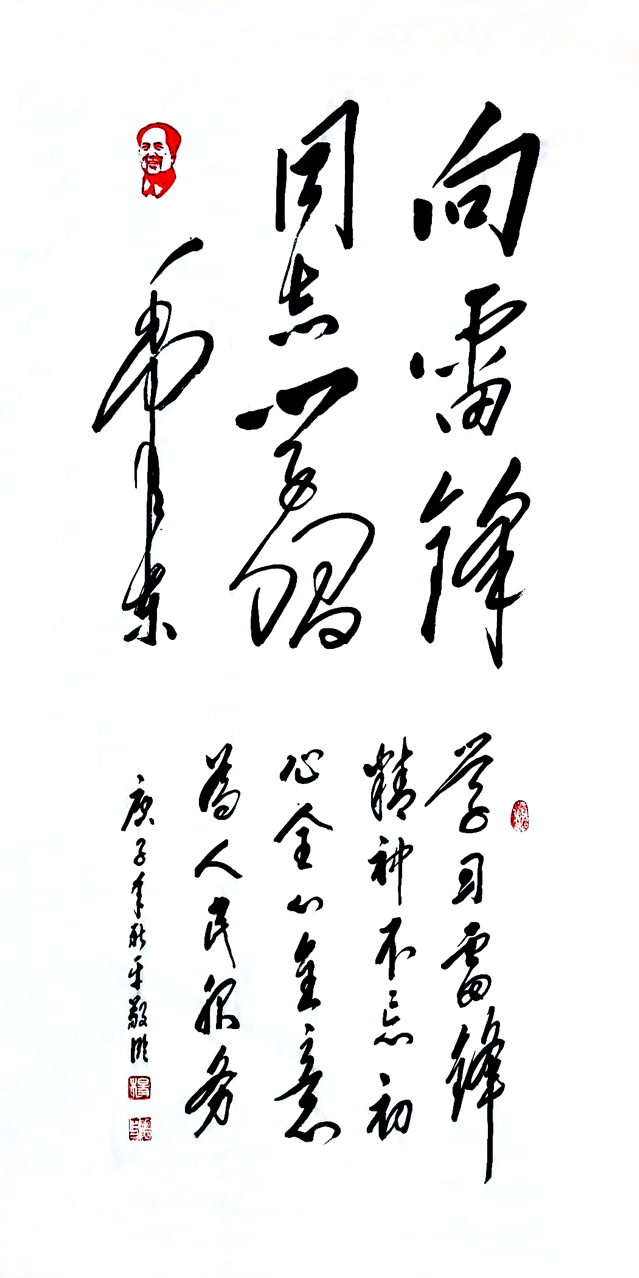 向雷锋
同志学习
毛泽东
学习雷锋
精神不忘初
心全心全意
為人民服务
庚子年秋平敬